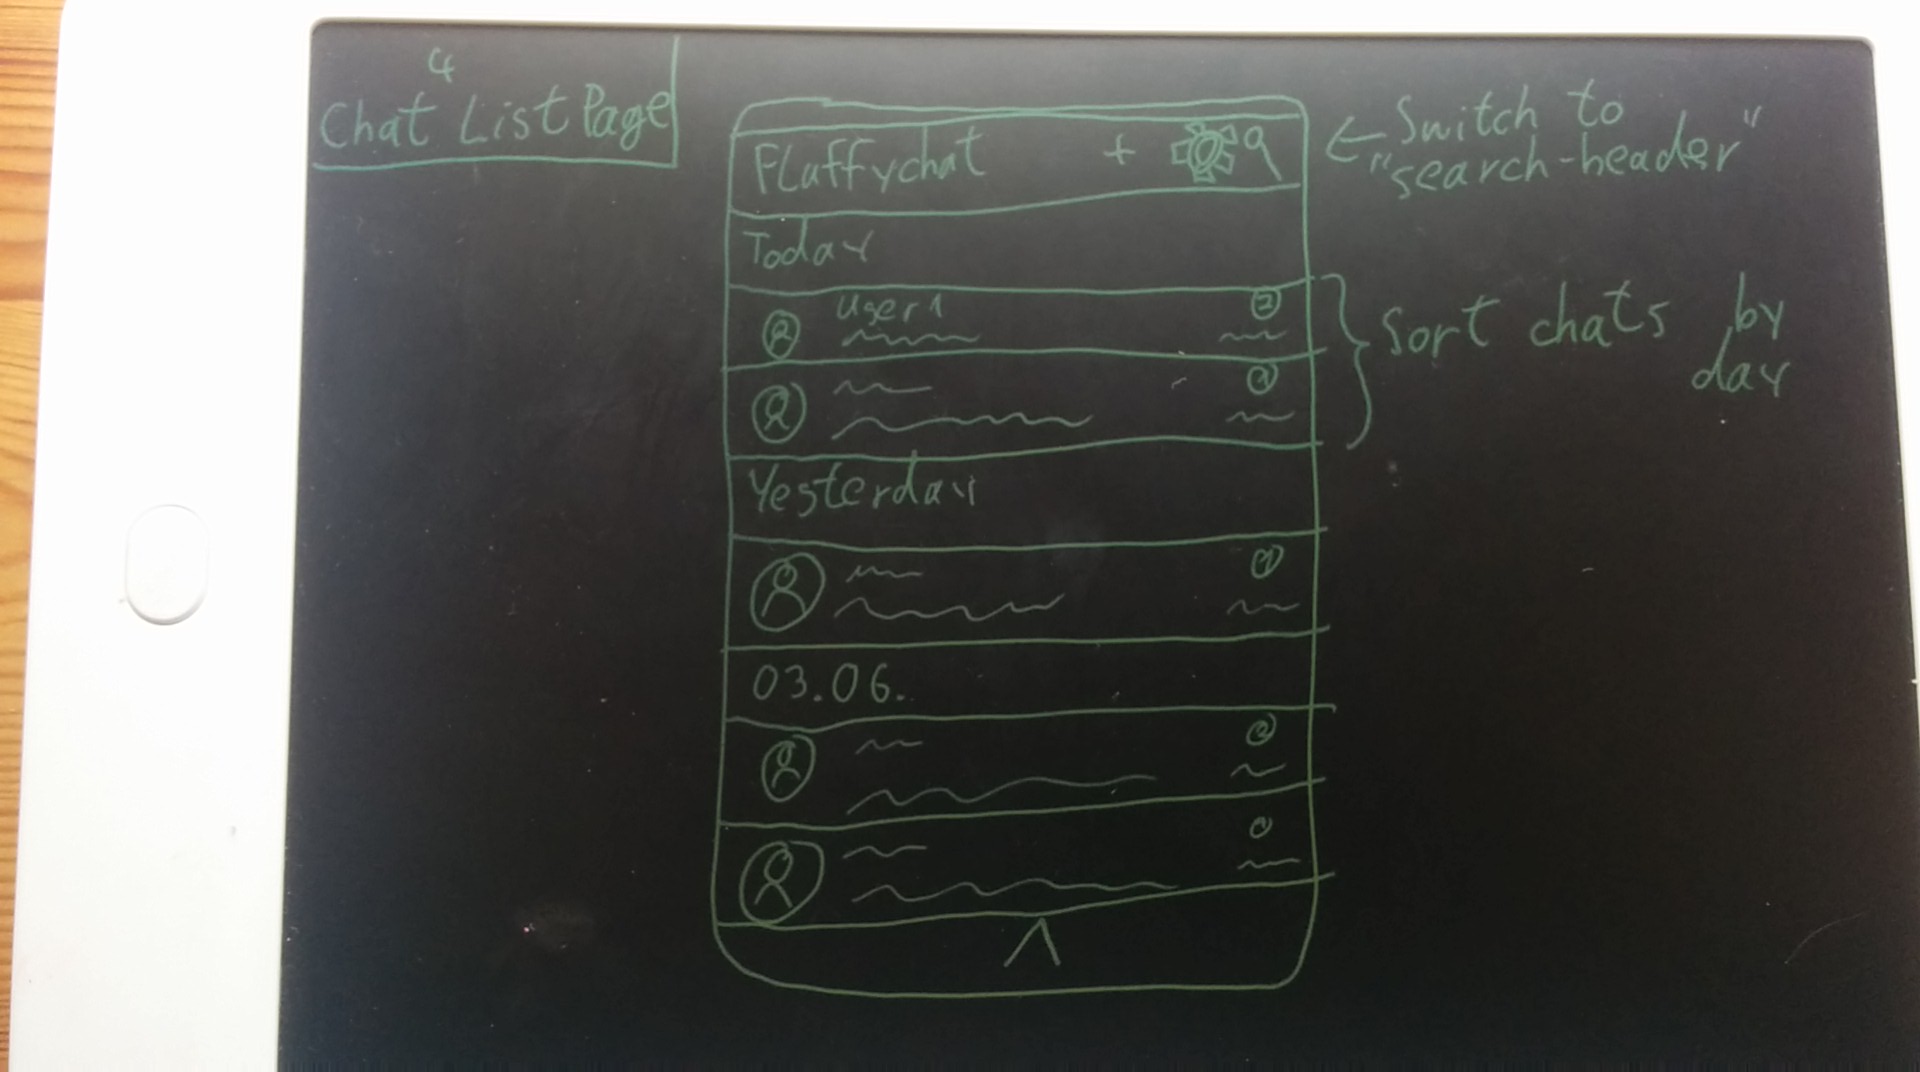 4
Chat List Page
Fluffychat +
← Switch to
"search-header"
Today
User 1
2
1
Sort chats by
day
Yesterday
1
03.06.
2